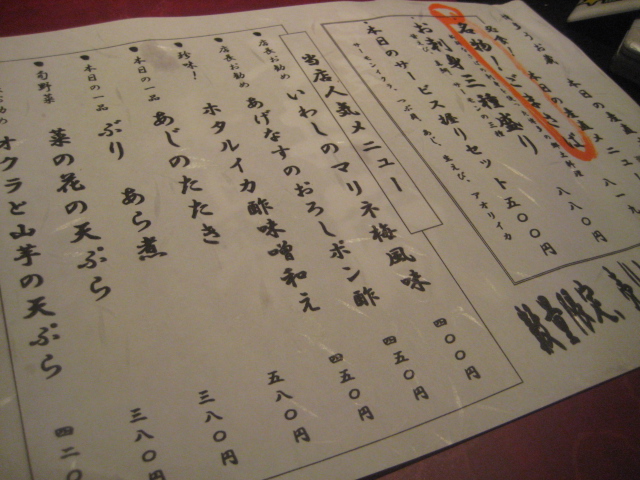 名物！ごまさば
お刺身三種盛り 八八〇円
本日のサービス握りセット 五〇〇円
つぶ貝、あじ、生えび、アオリイカ
数量限定、
当店人気メニュー
・店長お勧め いわしのマリネ梅風味 四〇〇円
・店長お勧め あげなすのおろしポン酢 四五〇円
・珍味！ ホタルイカ酢味噌和え 四五〇円
・本日の一品 あじのたたき 五八〇円
・本日の一品 ぶり あら煮 三八〇円
・旬野菜 菜の花の天ぷら 三八〇円
お勧め オクラと山芋の天ぷら 四二〇